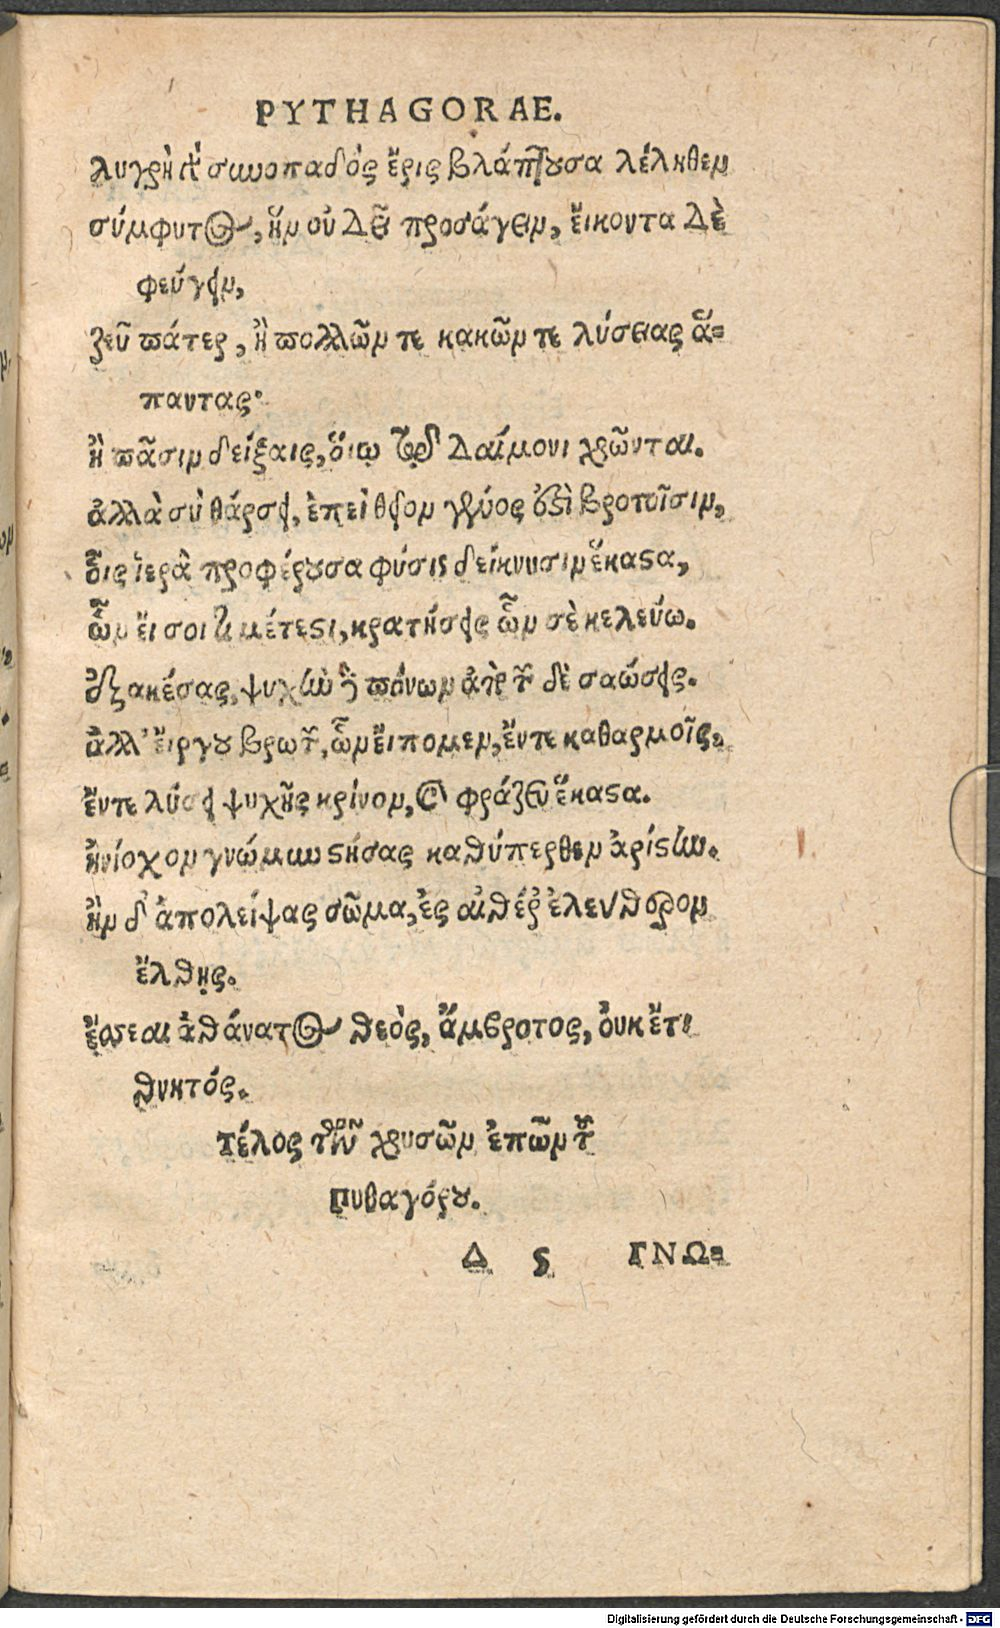 PYTHAGORAE.
λυγρὴ γὰρ συνοπαδὸς ἔρις βλάπτουσα λέληθεν
σύμφυτος, ἣν οὐ δεῖ προσάγειν, ἔικοντα δὲ
φεύγειν,
ζεῦ πάτερ, ἢ πολλῶν τε κακῶν τε λύσειας ἅ=
παντας·
ἢ πᾶσιν δείξαις, ὅιῳ τῷ δαίμονι χρῶνται.
ἀλλὰ σὺ θάρσει, ἐπεὶ θεῖον γένος ἐστὶ βροτοῖσιν,
οἷς ἱερὰ προφέρουσα φύσις δείκνυσιν ἕκαστα,
ὧν ἔι σοι τὶ μέτεστι, κρατήσεις ὧν σὲ κελεύω.
ἐξακέσας, ψυχὴν δὲ πόνων ἀπὸ τῶν δὲ σαώσεις.
ἀλλ' ἔιργου βρωτῶν, ὧν ἔιπομεν, ἔντε καθαρμοῖς,
ἔντε λύσει ψυχῆς κρίνον, καὶ φράζευ ἕκαστα.
ἡνίοχον γνώμην στήσας καθύπερθεν ἀρίστην.
ἢν δ' ἀπολείψας σῶμα, ἐς αἰθέρ' ἐλεύθερον
ἔλθης.
ἔσσεαι ἀθάνατος θεὸς, ἄμβροτος, ὀυκ ἔτι
θνητός.
τέλος τῶν χρυσῶν ἐπῶν τοῦ
Πυθαγόρου.
Δ 5 ΓΝΩ=
Digitalisierung gefördert durch die Deutsche Forschungsgemeinschaft - DFG